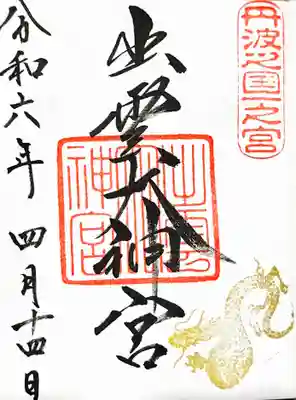 丹波之國一之宮
出雲大神宮
出雲大神宮
令和六年 四月十四日